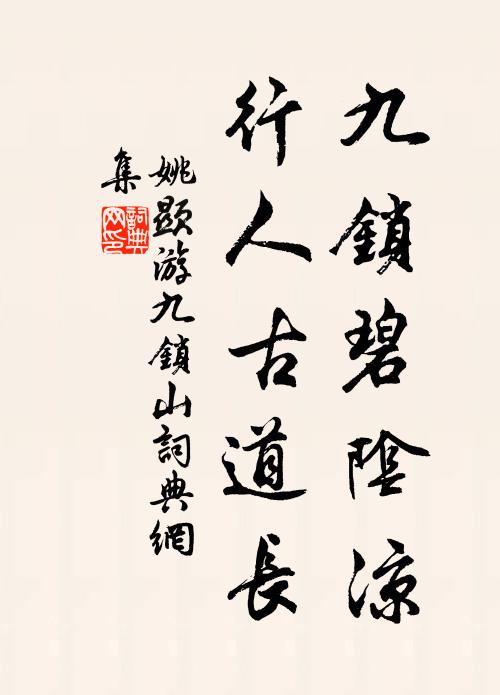 九鎖碧陰涼
行人古道長
姚顕游九鎖山詞典網
集
詞典網印